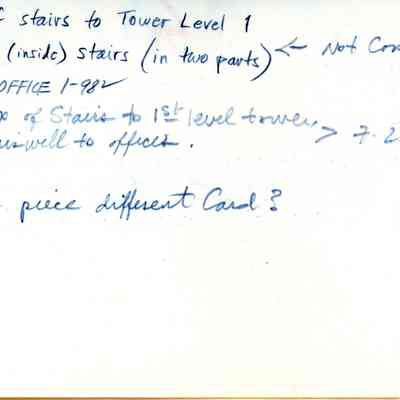 stairs to Tower Level 1
(inside) stairs (in two parts) ← Not
OFFICE 1-982
of Stairs to 1st level tower
to offices. > 7.2
piece different Card?